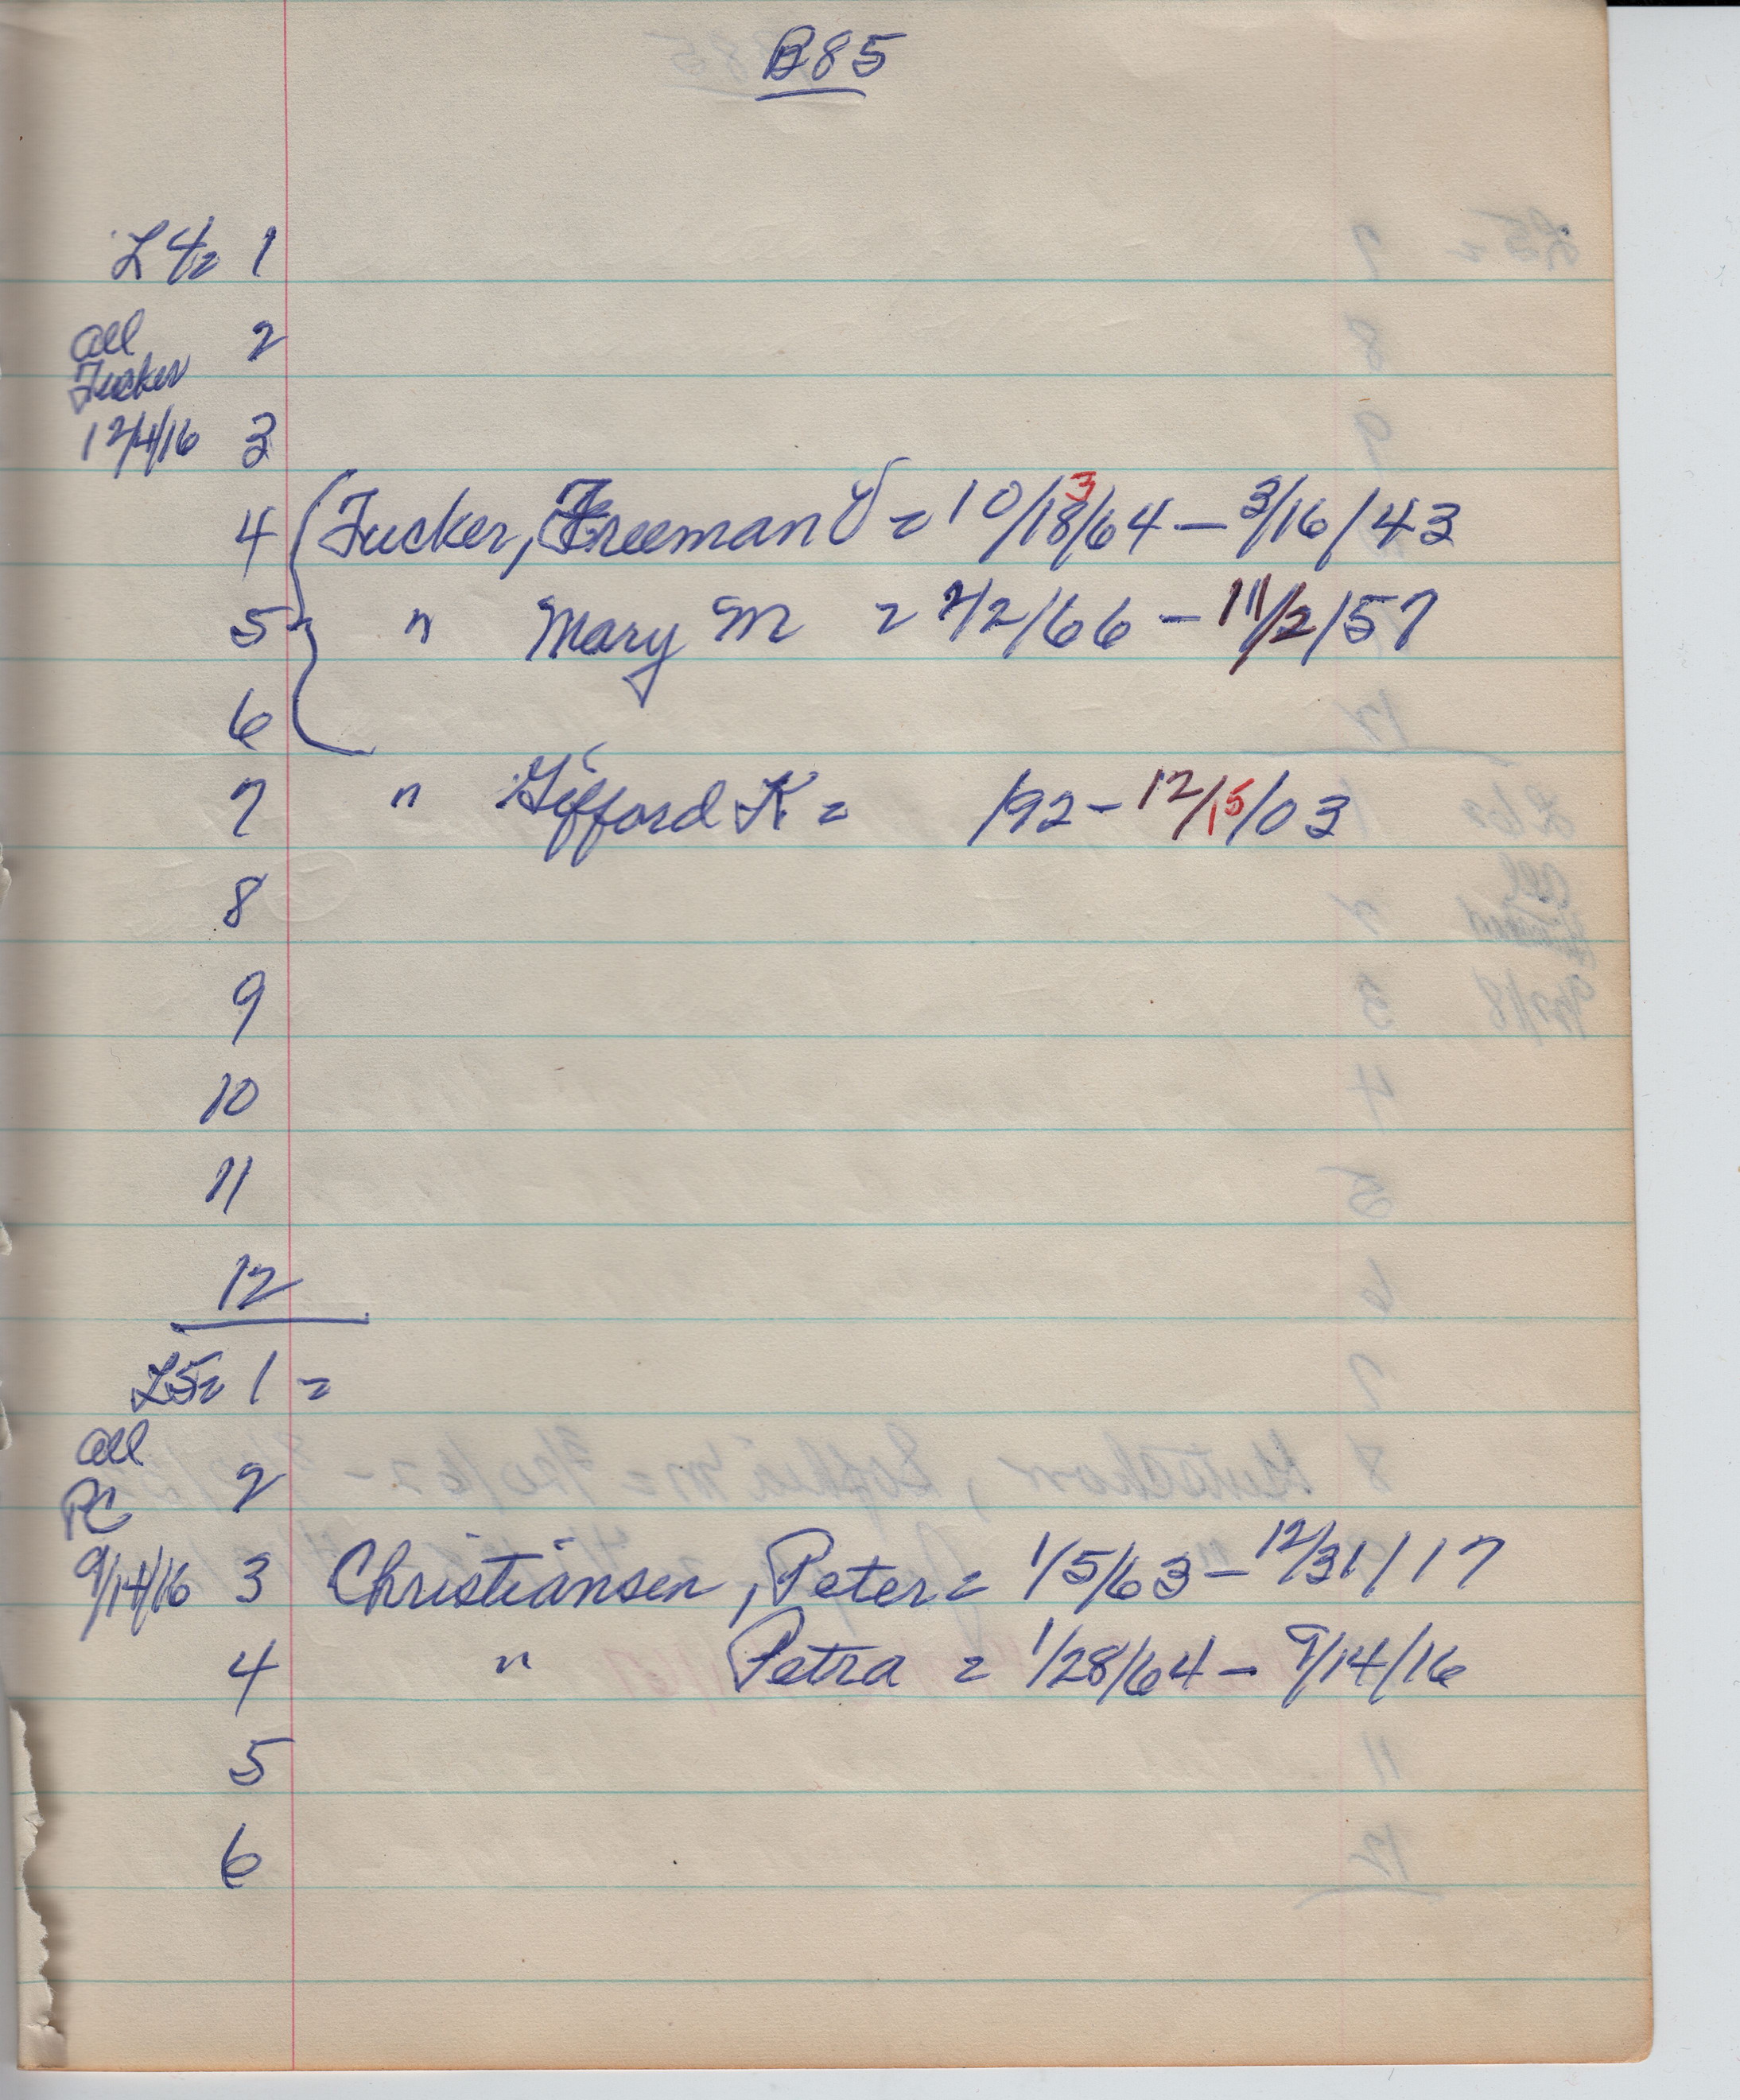 B85
L4= 1
all 2
Tucker
12/4/16 3
4 Tucker, Freeman J = 10/18/64 - 3/16/43
3
5 " Mary M = 2/2/66 - 11/2/57
6
7 " Gifford K = /92 - 12/15/03
8
9
10
11
12
L5= 1 =
all
PC 2
9/14/16 3 Christiansen, Peter = 1/5/63 - 12/31/17
4 " Petra = 1/28/64 - 9/14/16
5
6